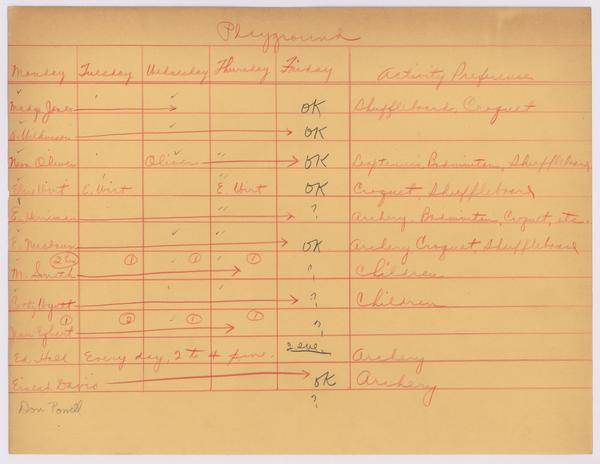 Playground
Monday Tuesday Wednesday Thursday Friday Activity Preference
Jones OK Shuffleboard, Croquet
OK
Oliver Oliver OK Badminton, Shuffleboard
Wirt E. Wirt E. Wirt OK Croquet, Shuffleboard
E. ? Archery, Badminton, Croquet, etc.
E. OK Archery Croquet, Shuffleboard
M. Smith 1 1 1 ? Children
Wyatt ? Children
Egbert 1 2 1 1 ?
Ed. Hall Every day, 2 to 4 p.m. 2 eve. Archery
Ernest Davis OK Archery
Don Powell ?